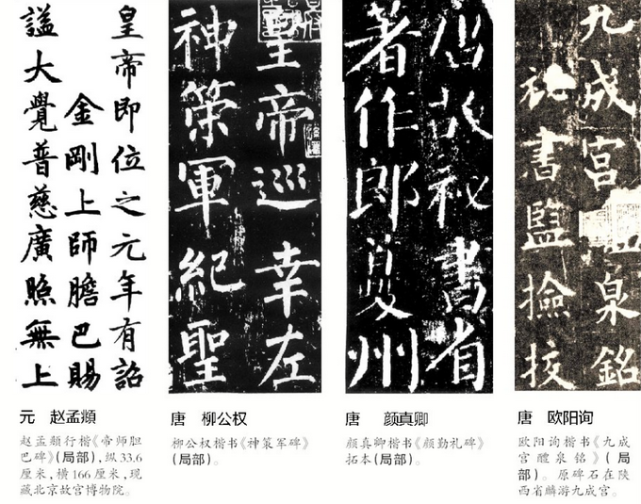 皇帝即位之元年有詔
金剛上師膽巴賜
謚大覺普慈廣照無上
皇帝巡幸左
神策軍紀聖
唐故祕書省
著作郎夔州
九成宮泉銘
祕書監撿挍
元 赵孟頫
赵孟頫行楷《帝师胆
巴碑》(局部),纵33.6
厘米,横166厘米,现
藏北京故宫博物院。
唐 柳公权
柳公权楷书《神策军碑》
(局部)。
唐 颜真卿
颜真卿楷书《颜勤礼碑》
拓本(局部)。
唐 欧阳询
欧阳询楷书《九成
宫醴泉铭》(局
部)。原碑石在陕
西省麟游九成宫。